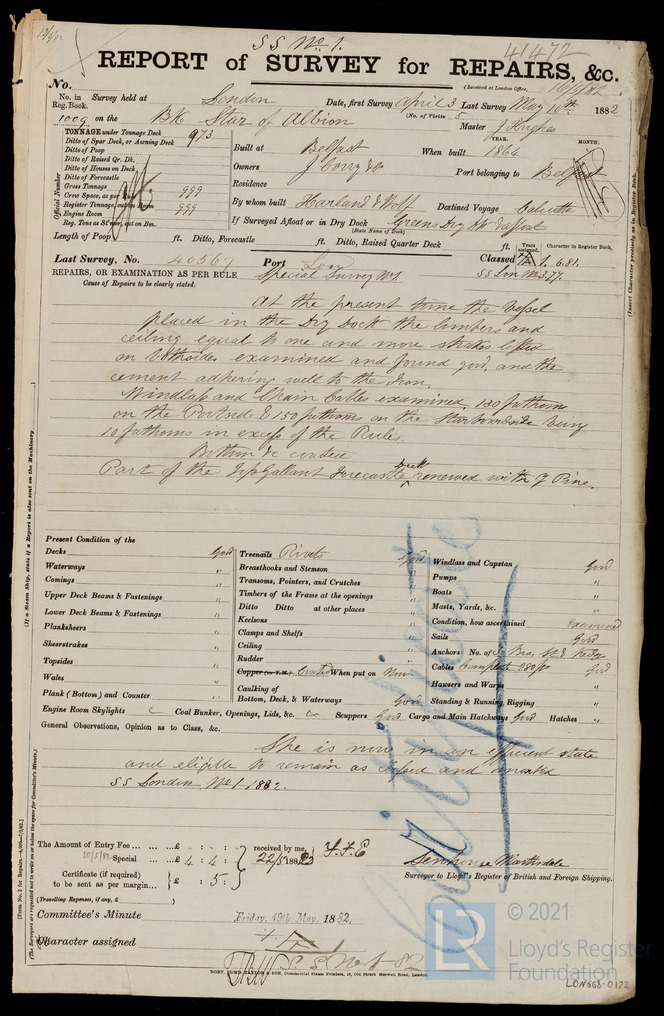 13/5/82
SS No. 1.
41472
REPORT of SURVEY for REPAIRS, &c.
No.
(Received at London Office,
No. in Reg. Book. Survey held at London Date, first Survey April 3 Last Survey May 10th 1882
1009 on the Bk Star of Albion (No. of Visits 5 Master J Hughes
TONNAGE under Tonnage Deck 973
Ditto of Spar Deck, or Awning Deck
Ditto of Poop
Ditto of Raised Qr. Dk.
Ditto of Houses on Deck
Ditto of Forecastle
Gross Tonnage 999
Crew Space, as per Rule
Register Tonnage, cut on Beam 999
Engine Room
Reg. Tons as St'mer, cut on Bm.
Official Number
Built at Belfast When built YEAR. 1864 MONTH.
Owners J Corry & Co Port belonging to Belfast
Residence
By whom built Harland & Wolf Destined Voyage Calcutta
If Surveyed Afloat or in Dry Dock Greens Dry Dk & afloat
(State Name of Dock)
Length of Poop ft. Ditto, Forecastle ft. Ditto, Raised Quarter Deck ft.
Years assigned. Character in Register Book.
Last Survey, No. 40567 Port Lon Classed A 1. 6.81.
REPAIRS, OR EXAMINATION AS PER RULE Special Survey No 1. SS Lon No 3.77.
Cause of Repairs to be clearly stated.
At the present time the Vessel
placed in the Dry Dock the limbers and
ceiling equal to one and more strakes lifted
on both sides examined and found good, and the
cement adhering well to the Iron,
Windlass and Chain Cables examined, 130 fathoms
on the Portside & 150 fathoms on the Starboardside being
10 fathoms in excess of the Rules.
Bottom &c coated
Part of the TopGallant Forecastle deck renewed with Y Pine.
Present Condition of the
Decks Good
Waterways "
Comings "
Upper Deck Beams & Fastenings "
Lower Deck Beams & Fastenings "
Planksheers "
Sheerstrakes "
Topsides "
Wales "
Plank (Bottom) and Counter "
Treenails Rivets Good
Breasthooks and Stemson "
Transoms, Pointers, and Crutches "
Timbers of the Frame at the openings "
Ditto Ditto at other places "
Keelsons "
Clamps and Shelfs "
Ceiling "
Rudder "
Copper (or Y.M.) Coated When put on Now
Caulking of
Bottom, Deck, & Waterways Good
Windlass and Capstan Good
Pumps "
Boats "
Masts, Yards, &c. "
Condition, how ascertained Examined
Sails Good
Anchors No. of 3 Bro, St & Kedge
Cables Complete 280 fs Good
Hawsers and Warps "
Standing & Running Rigging "
Engine Room Skylights Coal Bunker, Openings, Lids, &c. Scuppers Good Cargo and Main Hatchways Good Hatches "
General Observations, Opinion as to Class, &c.
She is now in an efficient state
and eligible to remain as classed and marked
SS London No 1 1882.
The Amount of Entry Fee ... ... £ : : received by me,
10/5/82 Special ... £ 4 : 4 : 22/5/1882
Certificate (if required)
to be sent as per margin... £ : 5 :
(Travelling Expenses, if any, £ )
Senhouse Martindale
Surveyor to Lloyd's Register of British and Foreign Shipping.
Committee's Minute Friday, 19th May, 1882.
Character assigned A 1
S.S. No 1-82
ROBT. EDMD. TAYLOR & SON, Commercial Steam Printers, 19, Old Street Goswell Road, London.
(If a Steam ship, state if a Report is also sent on the Machinery
(The Surveyors are requested not to write on or below the space for Committee's Minute.)
[Form No. 2 for Repairs.—4,000—7/3/82.]
(Insert Character precisely as in Register Book.
Certificate
LR
© 2021
Lloyd's Register
Foundation
LON668-0172